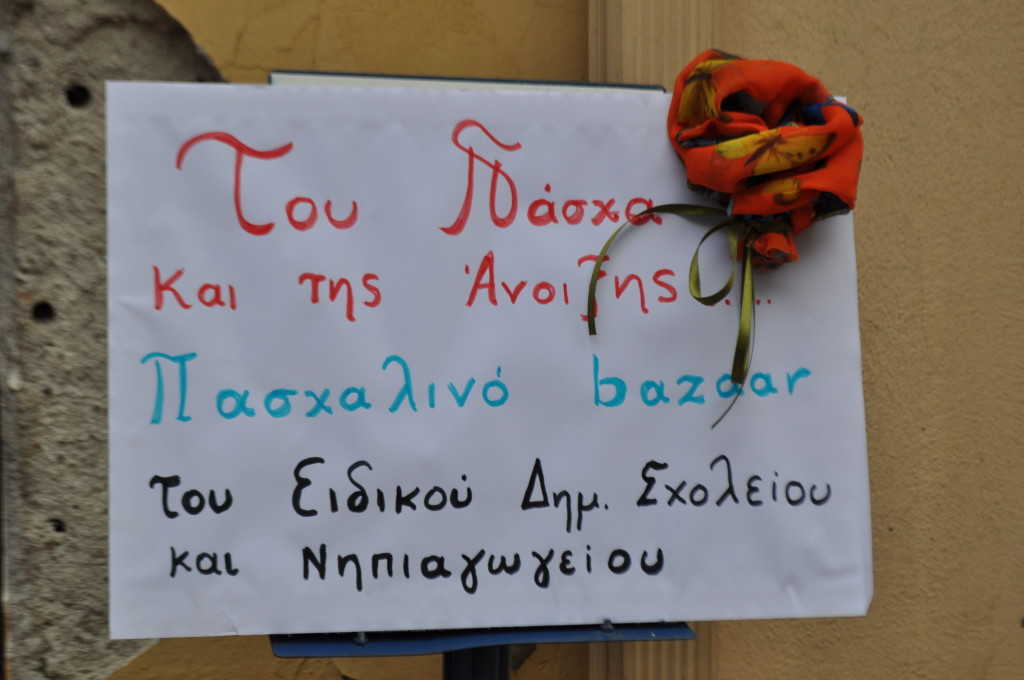 Του Πάσχα
και της Άνοιξης ....
Πασχαλινό bazaar
του Ειδικού Δημ. Σχολείου
και Νηπιαγωγείου